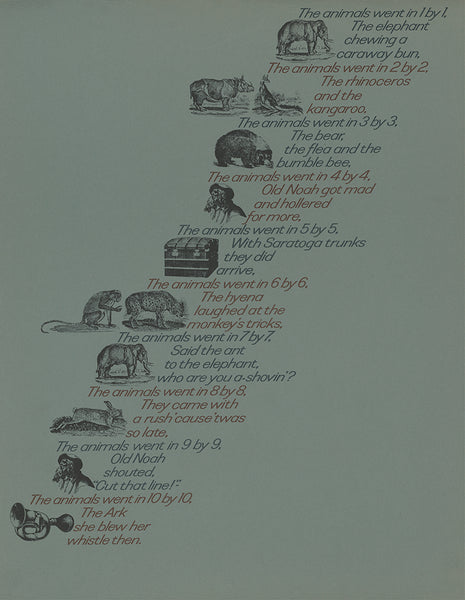 The animals went in 1 by 1,
The elephant
chewing a
caraway bun,
The animals went in 2 by 2,
The rhinoceros
and the
kangaroo.
The animals went in 3 by 3,
The bear,
the flea and the
bumble bee,
The animals went in 4 by 4,
Old Noah got mad
and hollered
for more,
The animals went in 5 by 5,
With Saratoga trunks
they did
arrive,
The animals went in 6 by 6,
The hyena
laughed at the
monkey's tricks,
The animals went in 7 by 7,
Said the ant
to the elephant,
who are you a-shovin'?
The animals went in 8 by 8,
They came with
a rush 'cause 'twas
so late,
The animals went in 9 by 9,
Old Noah
shouted,
"Cut that line!"
The animals went in 10 by 10,
The Ark
she blew her
whistle then.